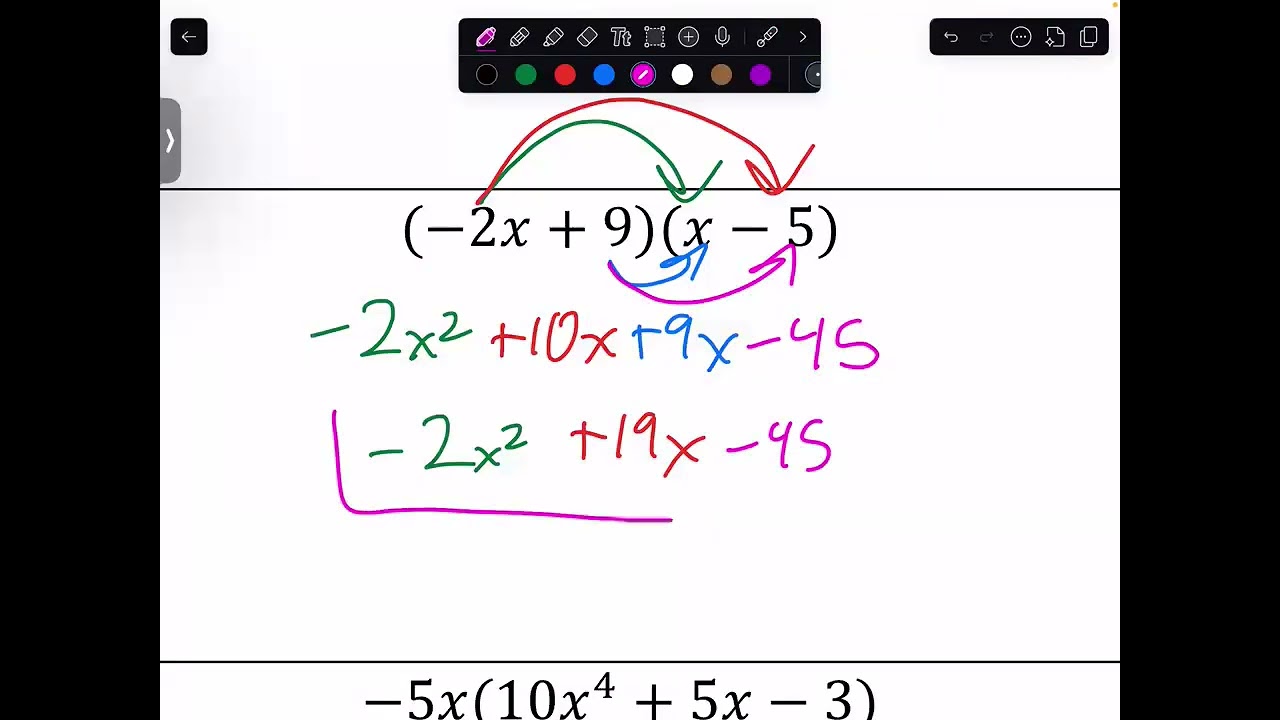 Tt
(−2x + 9)(x − 5)
-2x² +10x +9x -45
-2x² +19x -45
−5x(10x⁴ + 5x − 3)